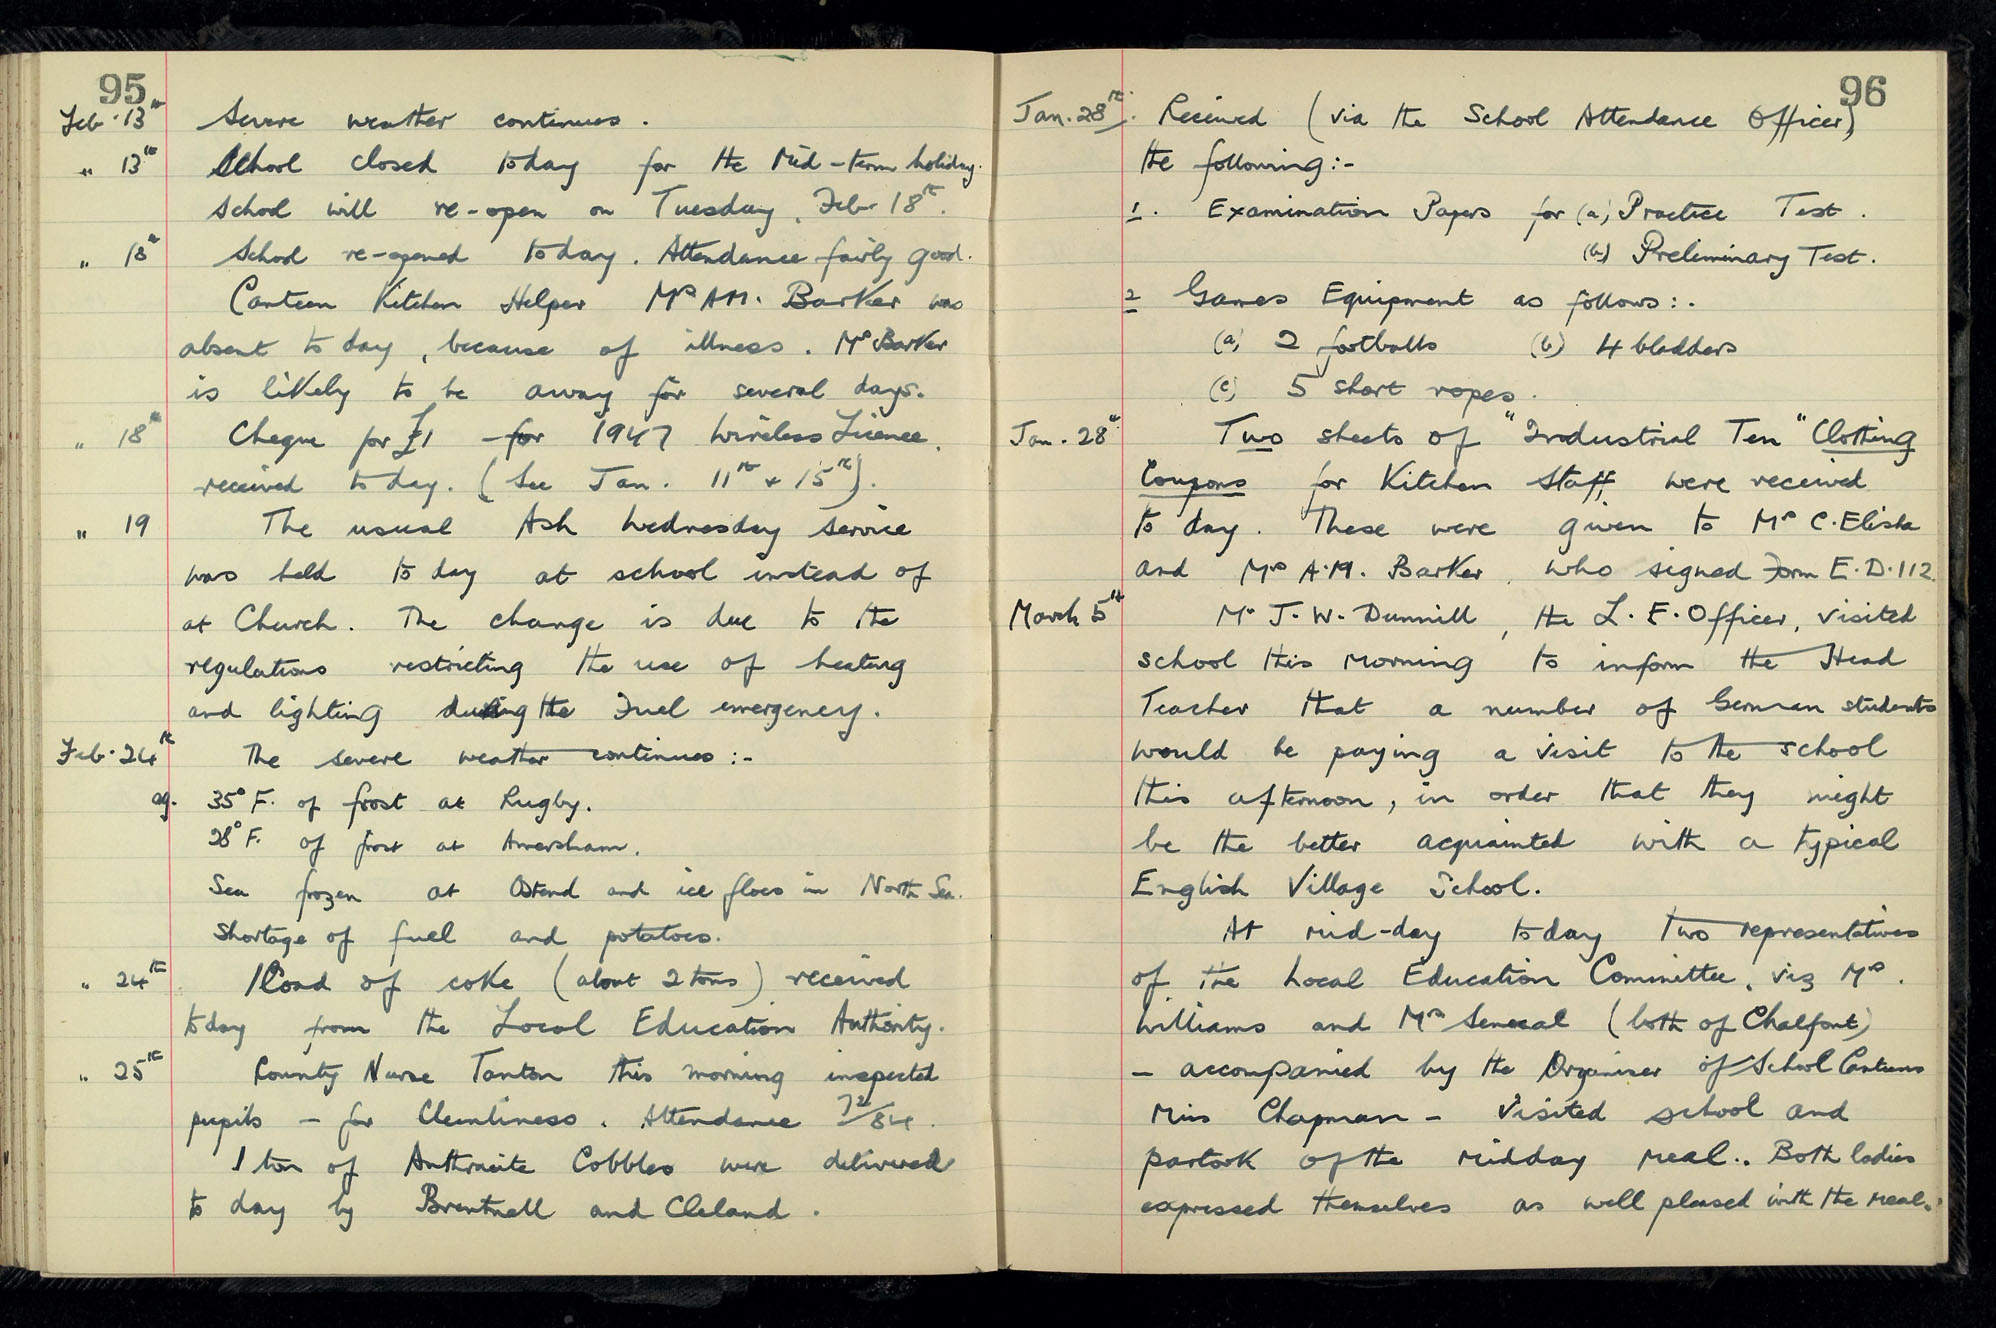 95
Feb. 13th Severe weather continues.
" 13th School closed today for the Mid-term holiday.
School will re-open on Tuesday, Feb 18th.
" 18th School re-opened today. Attendance fairly good.
Canteen Kitchen Helper Mrs A.M. Barker was
absent to day, because of illness. Mrs Barker
is likely to be away for several days.
" 18th Cheque for £1 - for 1947 Wireless Licence,
received to day. (See Jan. 11th + 15th).
" 19 The usual Ash Wednesday service
was held to day at school instead of
at Church. The change is due to the
regulations restricting the use of heating
and lighting during the Fuel emergency.
Feb. 24th The severe weather continues :-
eg. 35° F. of frost at Rugby.
28° F. of frost at Amersham.
Sea frozen at Ostend and ice floes in North Sea.
Shortage of fuel and potatoes.
" 24th 1 Load of coke (about 2 tons) received
today from the Local Education Authority.
" 25th County Nurse Tanton this morning inspected
pupils - for Cleanliness. Attendance 72/84.
1 ton of Anthracite Cobbles were delivered
to day by Brentnall and Cleland.
96
Jan. 28th. Received (via the School Attendance Officer)
the following :-
1. Examination Papers for (a) Practice Test.
(b) Preliminary Test.
2 Games Equipment as follows :-
(a) 2 footballs (b) 4 bladders
(c) 5 short ropes.
Jan. 28th Two sheets of "Industrial Ten" Clothing
Coupons for Kitchen Staff were received
to day. These were given to Mrs C. Elisha
and Mrs A.M. Barker, who signed Form E.D.112.
March 5th Mr J. W. Dunnill, the L. E. Officer, visited
school this morning to inform the Head
Teacher that a number of German students
would be paying a visit to the school
this afternoon, in order that they might
be the better acquainted with a typical
English Village School.
At mid-day today two representatives
of the Local Education Committee, viz Mrs.
Williams and Mrs Senecal (both of Chalfont)
- accompanied by the Organiser of School Canteens
Miss Chapman - visited school and
partook of the midday meal.. Both ladies
expressed themselves as well pleased with the meal.